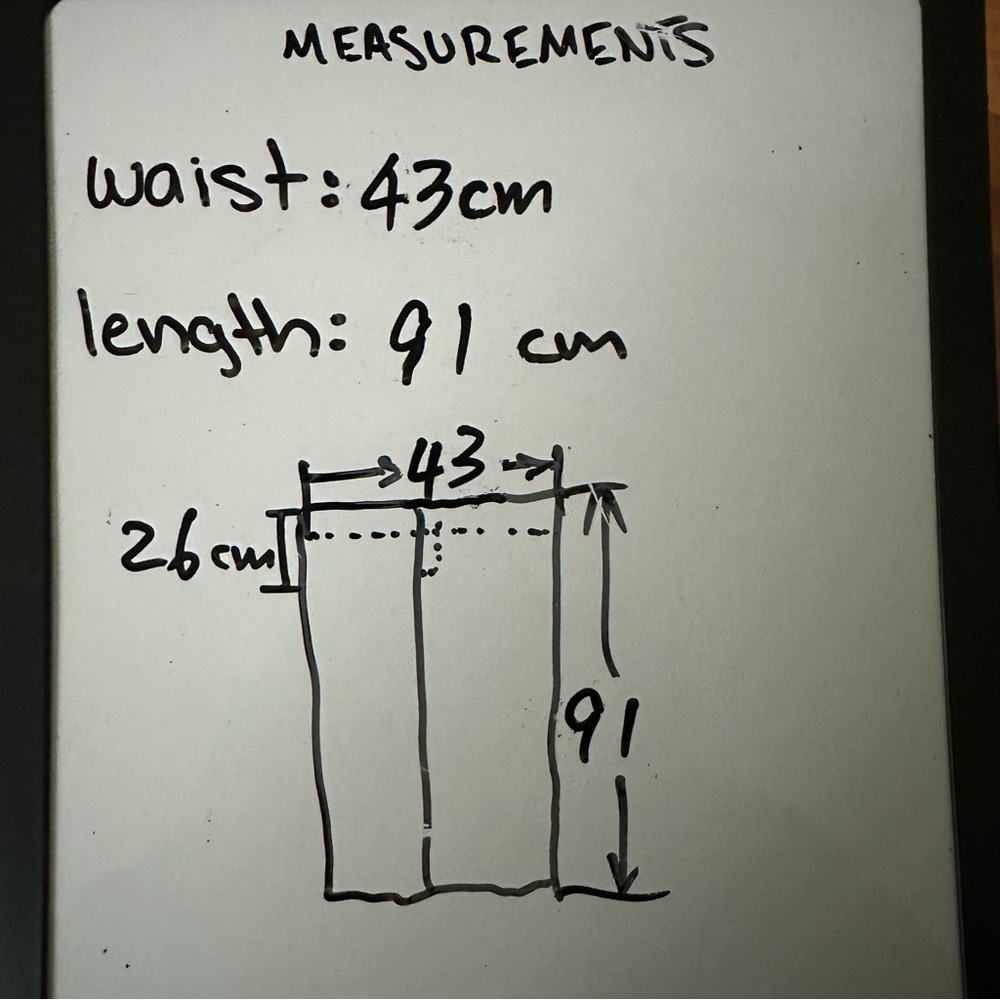 MEASUREMENTS
waist: 43cm
length: 91 cm
43
26cm
91